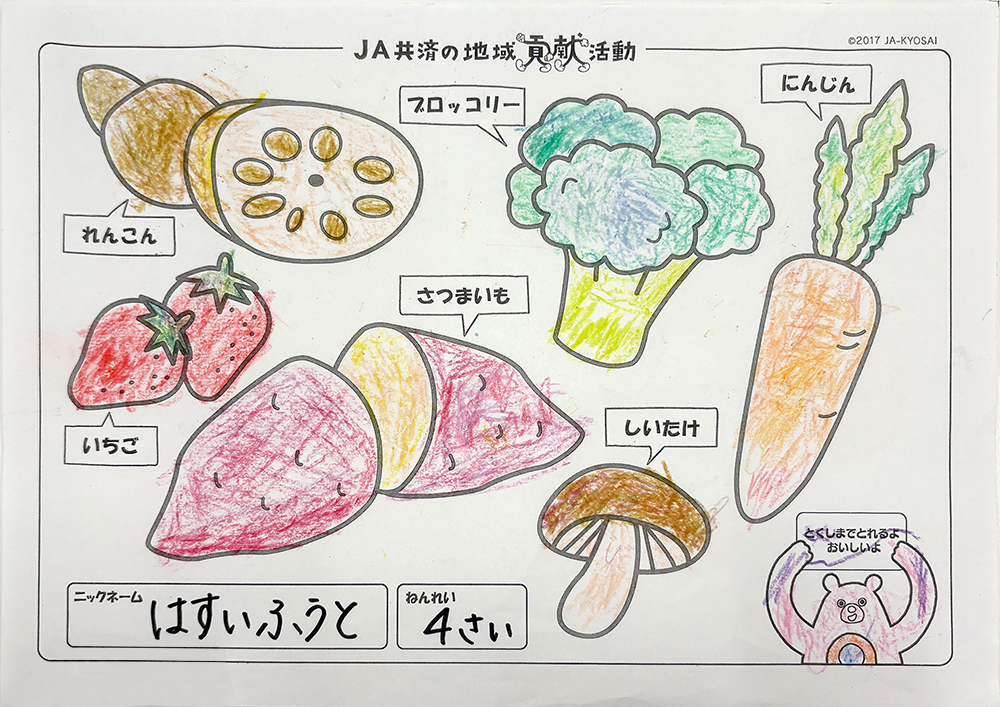 ©2017 JA-KYOSAI
JA共済の地域貢献活動
ブロッコリー
にんじん
れんこん
さつまいも
いちご
しいたけ
とくしまでとれるよ
おいしいよ
ニックネーム
はすいふうと
ねんれい
4さい